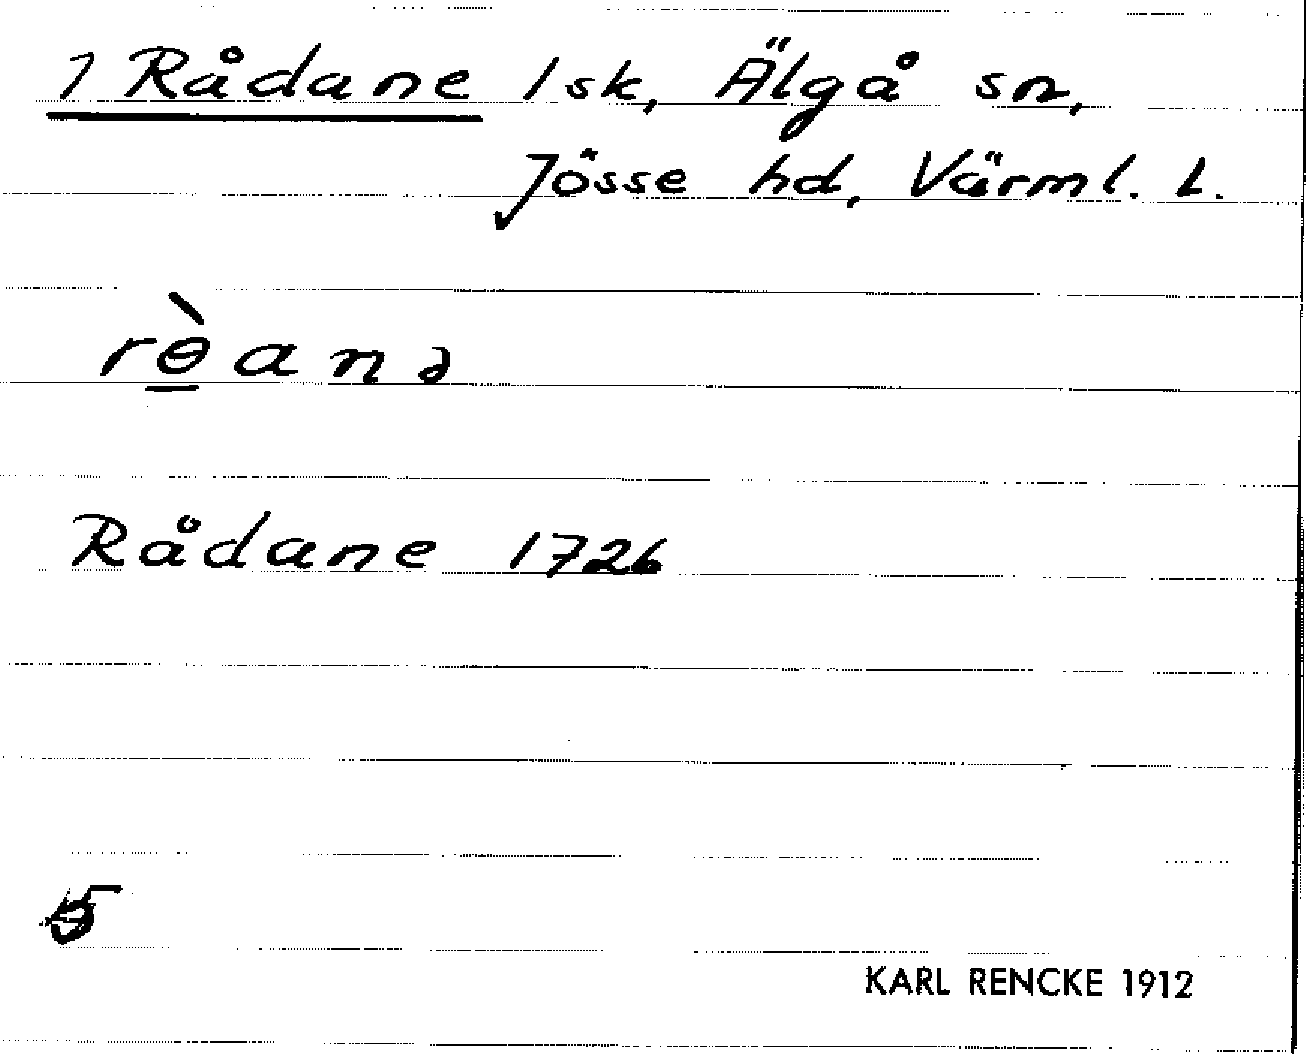 1 Rådane 1 sk, Älgå sn,
Jösse hd, Värml. L.
rɵ̠̀anə
Rådane 1726
5
KARL RENCKE 1912